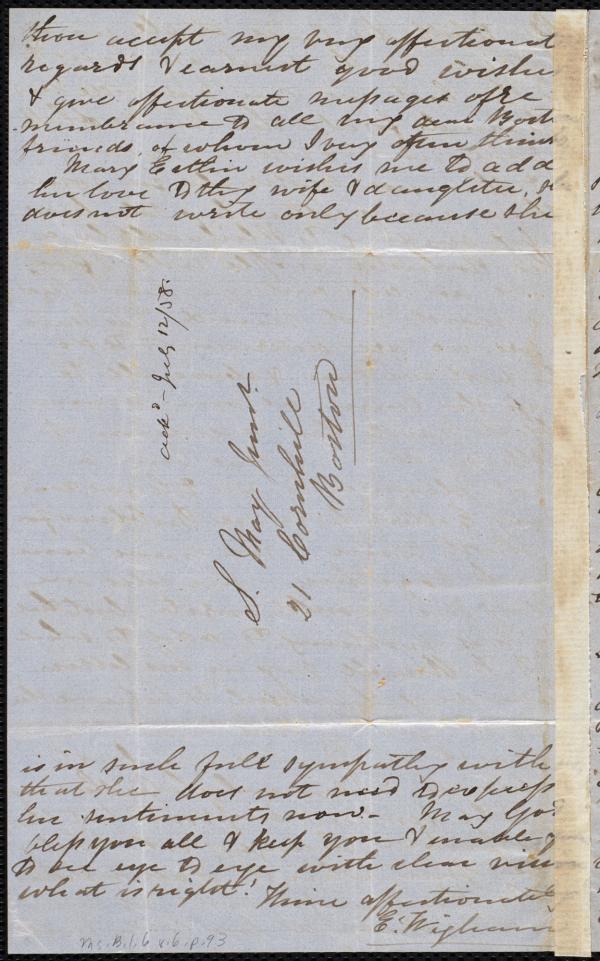 thou accept my very affectionate
regards & earnest good wishes
& give affectionate messages of re
membrance to all my dear Boston
friends, of whom I very often think
Mary Estlin wishes me to add
her love to thy wife & daughter, she
does not write only because she
ackd - July 12/58.
S. May Junr.
21 Cornhill
Boston
is in such full sympathy with
that she does not need to express
her sentiments now - May God
bless you all & keep you & enable
to see eye to eye with clear vision
what is right! Thine affectionately
E. Wigham
Ms. B.1.6 v.6, p.93